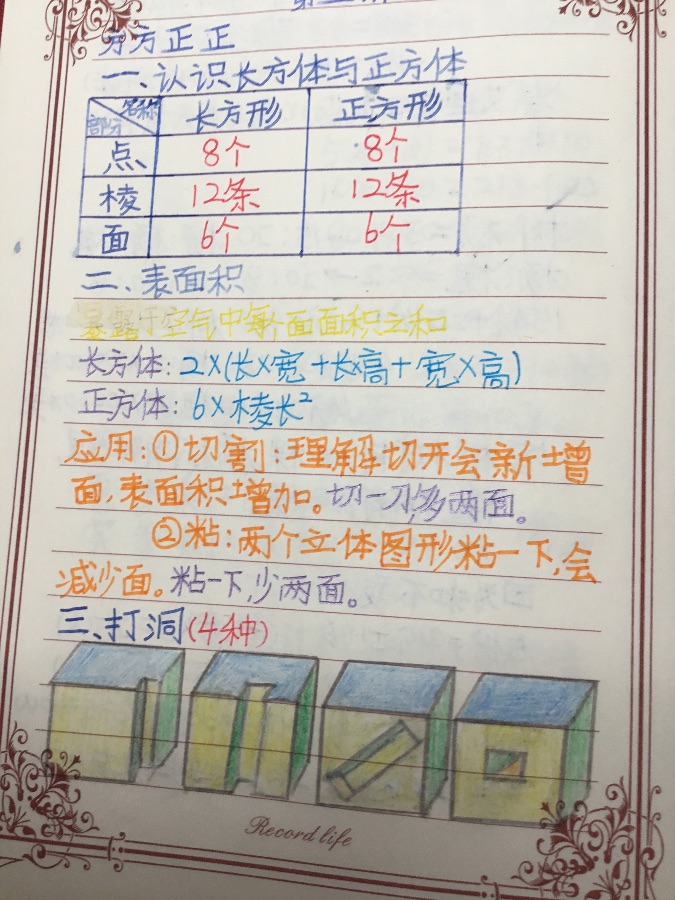 方方正正
一、认识长方体与正方体
名称 部分 长方形 正方形
点 8个 8个
棱 12条 12条
面 6个 6个
二、表面积
暴露于空气中每个面面积之和
长方体:2×(长×宽+长×高+宽×高)
正方体:6×棱长²
应用:①切割:理解切开会新增
面,表面积增加。切一刀,多两面。
②粘:两个立体图形粘一下,会
减少面。粘一下,少两面。
三、打洞(4种)
Record life